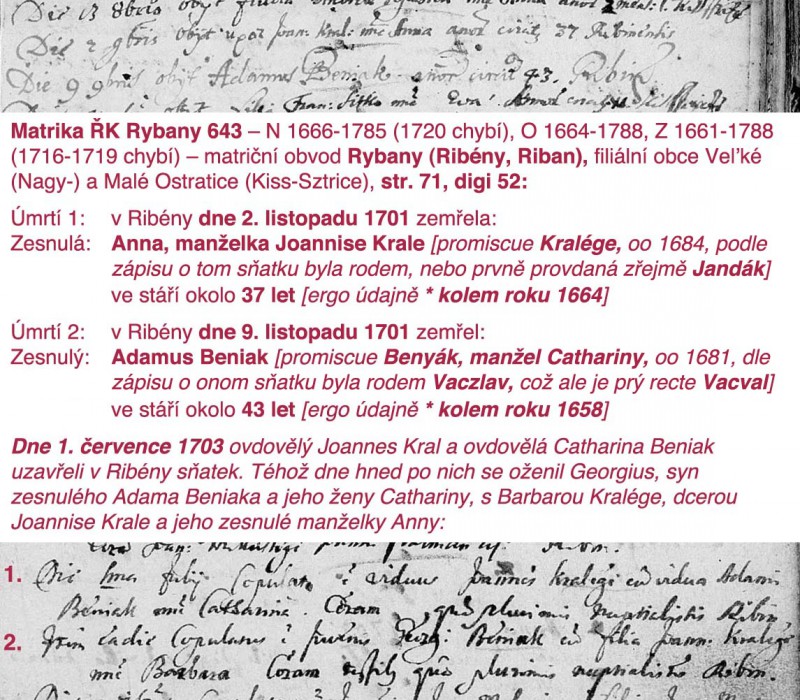 Die 13 8bris obijt filius
Die 2 9bris obijt uxor Joan: Kral: noe Anna anor circit 37 Ribinensis
Die 9 9bris obijt Adamus Beniak anor circit 43. Ribin:
obijt Fran: noe Eva
Matrika ŘK Rybany 643 – N 1666-1785 (1720 chybí), O 1664-1788, Z 1661-1788
(1716-1719 chybí) – matriční obvod Rybany (Ribény, Riban), filiální obce Veľké
(Nagy-) a Malé Ostratice (Kiss-Sztrice), str. 71, digi 52:
Úmrtí 1: v Ribény dne 2. listopadu 1701 zemřela:
Zesnulá: Anna, manželka Joannise Krale [promiscue Kralége, oo 1684, podle
zápisu o tom sňatku byla rodem, nebo prvně provdaná zřejmě Jandák]
ve stáří okolo 37 let [ergo údajně * kolem roku 1664]
Úmrtí 2: v Ribény dne 9. listopadu 1701 zemřel:
Zesnulý: Adamus Beniak [promiscue Benyák, manžel Cathariny, oo 1681, dle
zápisu o onom sňatku byla rodem Vaczlav, což ale je prý recte Vacval]
ve stáří okolo 43 let [ergo údajně * kolem roku 1658]
Dne 1. července 1703 ovdovělý Joannes Kral a ovdovělá Catharina Beniak
uzavřeli v Ribény sňatek. Téhož dne hned po nich se oženil Georgius, syn
zesnulého Adama Beniaka a jeho ženy Cathariny, s Barbarou Kralége, dcerou
Joannise Krale a jeho zesnulé manželky Anny:
1. Die 1ma Julij Copulatus ē viduus Joannes Kralegi cū vidua Adami
Beniak noe Catharina. Coram quā plurimis nuptialistis Ribin:
2. Item eadie Copulatus ē juvenis Georgi Beniak cū filia Joann: Kralege
noe Barbara Coram testib quā plurimis nuptialistis Ribin.